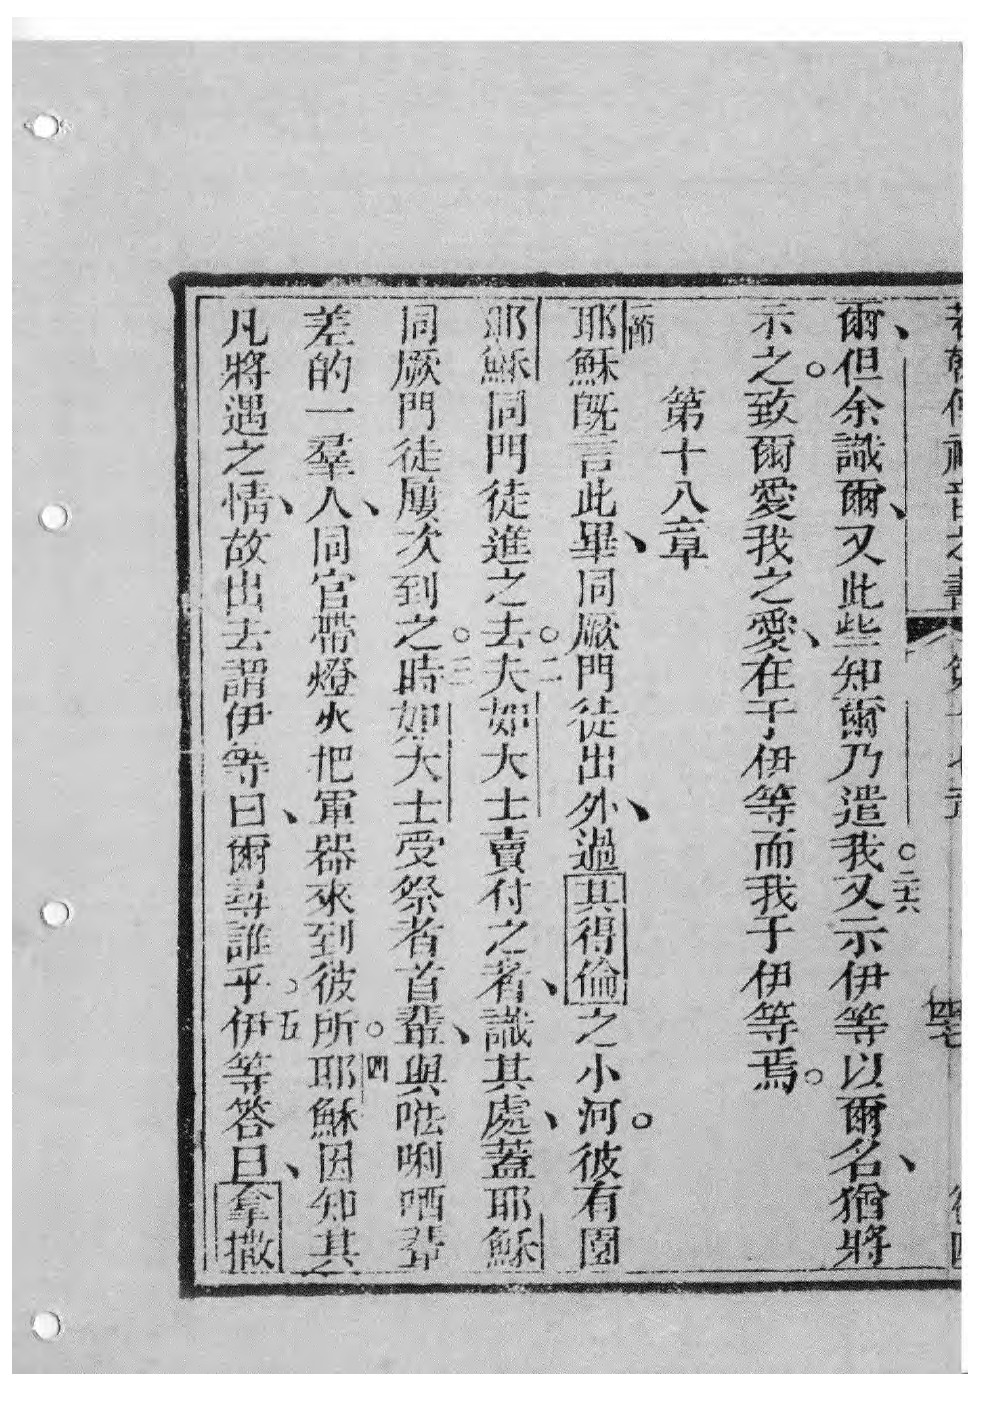 爾、但余識爾、又此些知爾乃遣我。二六又示伊等以爾名、猶將
示之。致爾愛我之愛、在于伊等而我于伊等焉。
第十八章
一節耶穌既言此畢、同厥門徒出外、過其得倫之小河。彼有園
耶穌同門徒進之去。二夫如大士賣付之者、識其處、蓋耶穌
同厥門徒屢次到之時。三如大士受祭者首輩、與𠵽唎哂輩
差的一羣人、同官帶燈火把軍器來到彼所。四耶穌因知其
凡將遇之情、故出去謂伊等曰、爾尋誰乎。五伊等答曰、拿撒